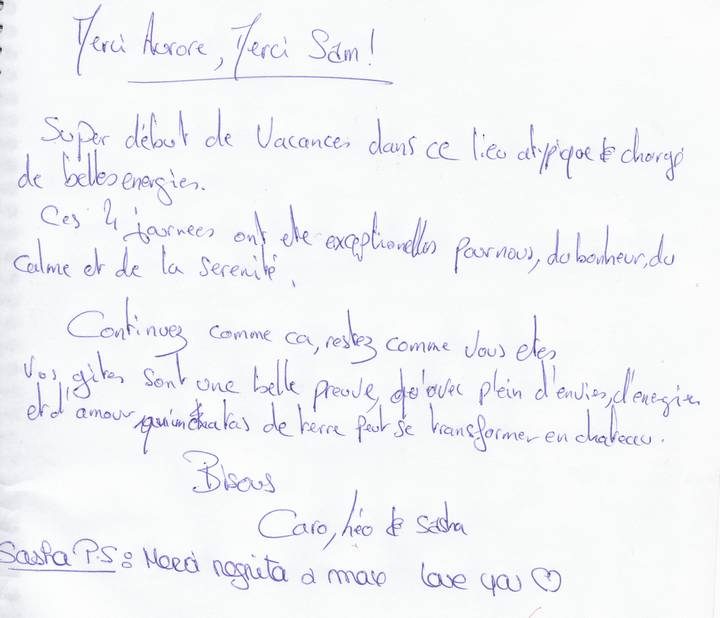 Merci Aurore, Merci Sam!
Super début de Vacances dans ce lieu atypique & chargé
de belles energies.
Ces 4 journees ont ete exceptionelles pour nous, du bonheur, du
calme et de la serenité.
Continuez comme ca, restez comme vous etes
Vos gites sont une belle preuve, qu'avec plein d'envies, d'energie
et d'amour qu'un tas de terre peut se transformer en chateau.
Bisous
Caro, Léo & Sasha
Sasha P.S: Merci negrita & max love you ♡